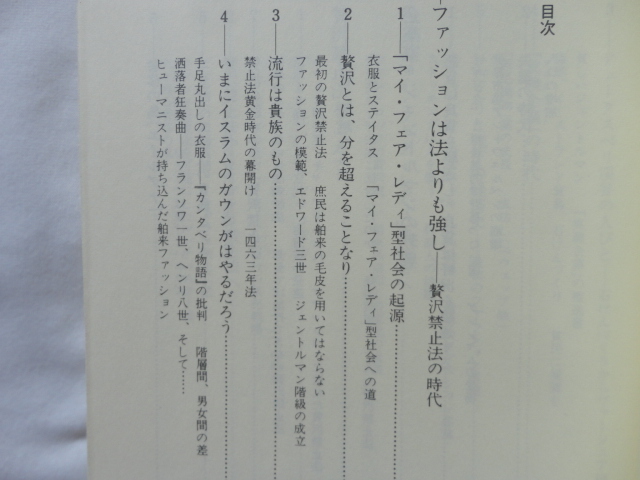 目次
ファッションは法よりも強し――贅沢禁止法の時代
1――「マイ・フェア・レディ」型社会の起源
衣服とステイタス　「マイ・フェア・レディ」型社会への道
2――贅沢とは、分を超えることなり
最初の贅沢禁止法　庶民は舶来の毛皮を用いてはならない
ファッションの模範、エドワード三世　ジェントルマン階級の成立
3――流行は貴族のもの
禁止法黄金時代の幕開け　一四六三年法
4――いまにイスラムのガウンがはやるだろう
手足丸出しの衣服――『カンタベリ物語』の批判　階層間、男女間の差
洒落者狂奏曲――フランソワ一世、ヘンリ八世、そして……
ヒューマニストが持ち込んだ舶来ファッション